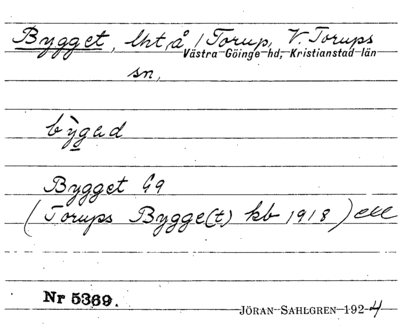 Bygget, lht, å 1 Torup, V. Torups
Västra Göinge hd, Kristianstad län
sn,
bỳgad
Bygget G9
(Torups Bygge(t) kb 1918) ell
Nr 5369.
JÖRAN SAHLGREN 1924